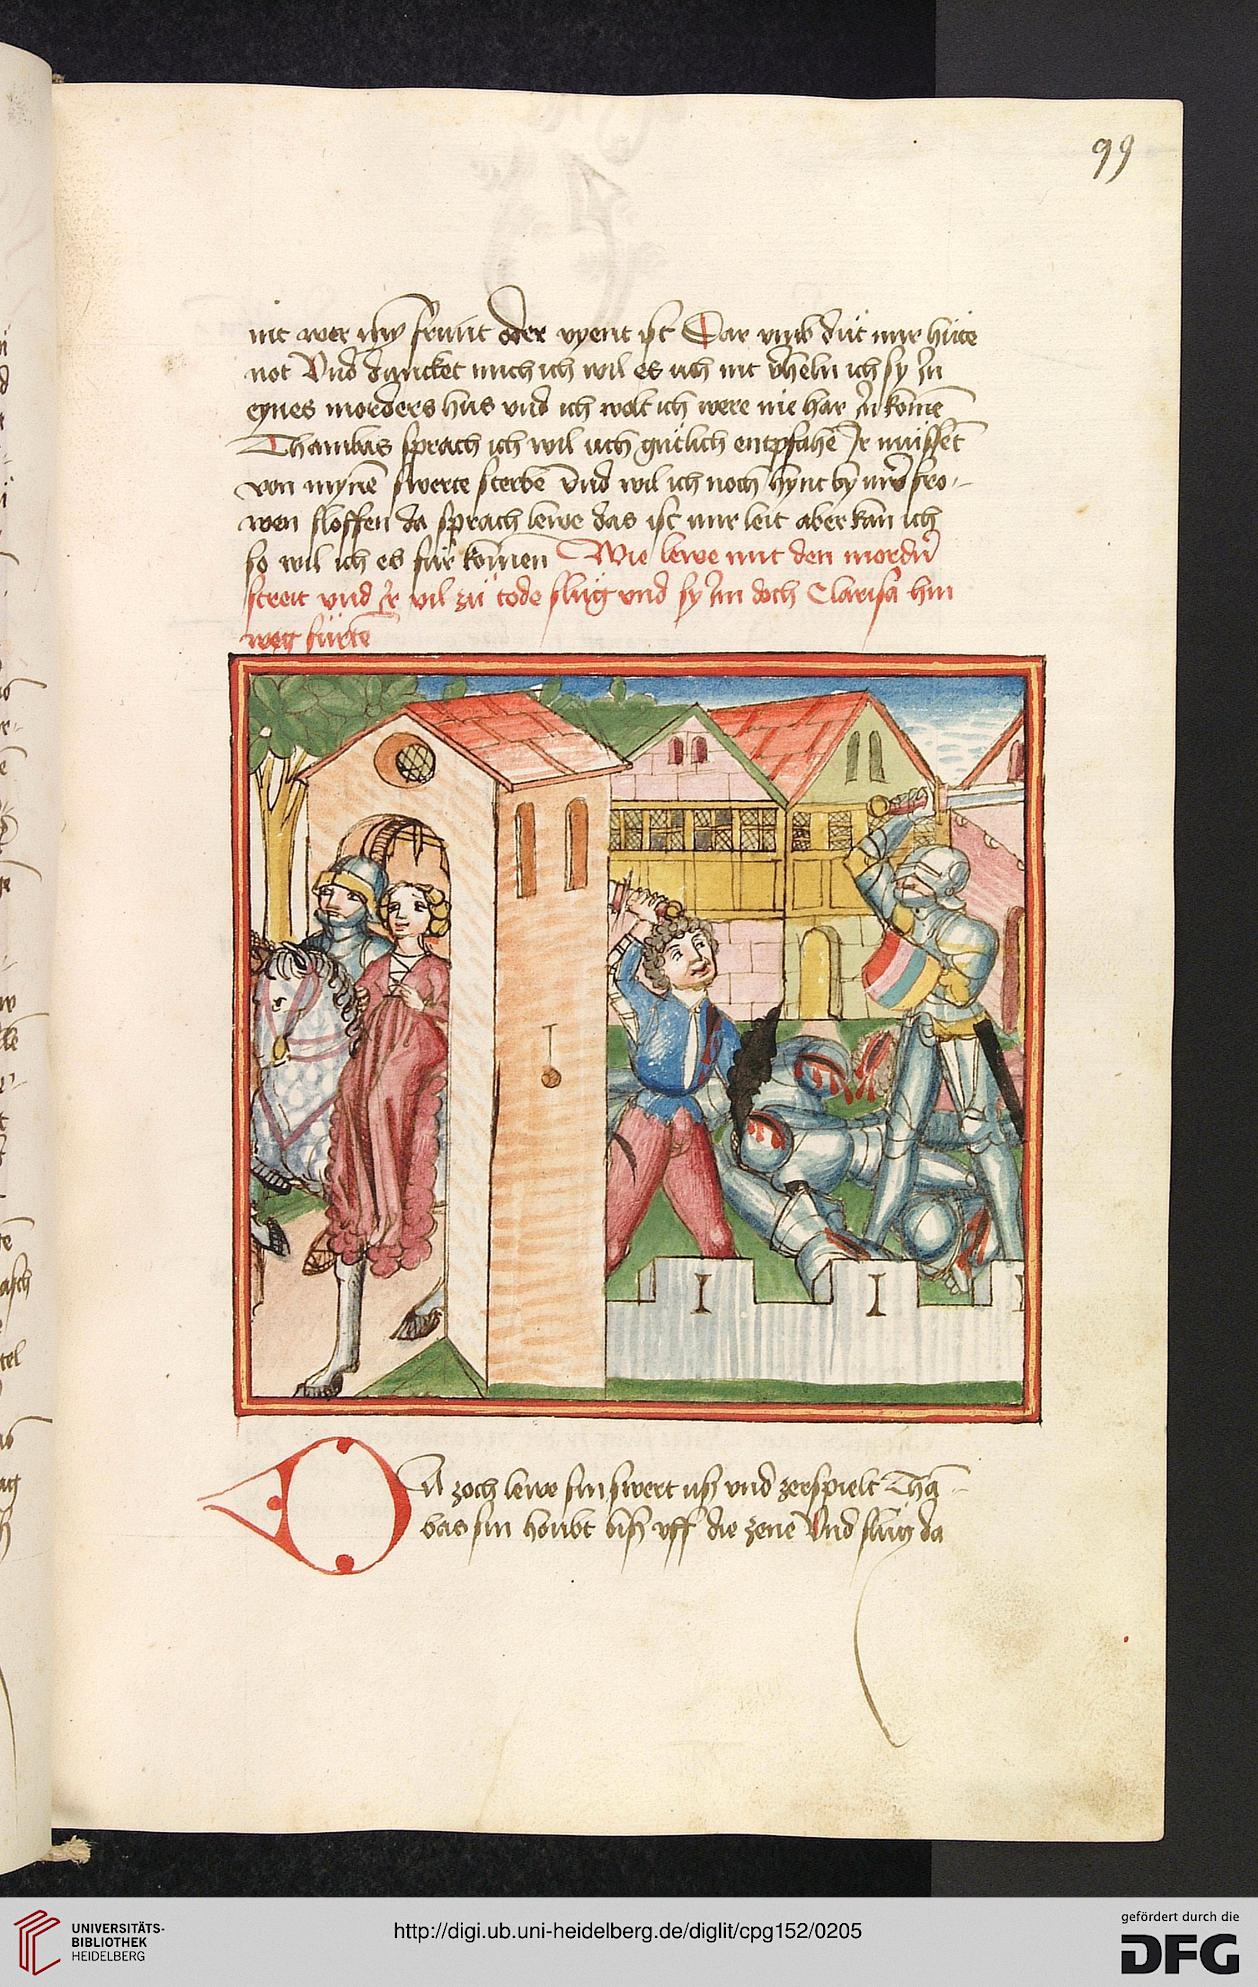 99
nit wer myn frunt oder vyent ist Dar vmb dut mir hute
not Vnd duncket mich ich wil es uch nit v̓heln ich sy Jn
eynes morders hus vnd ich wolt ich were nie har Jn komē
Thambas sprach ich wil uch gutlich entpfahē Jr mussēt
von mynē swerte sterbē Vnd wil ich noch hynt by uwer fro-
wen sloffen da sprach lewe das ist mir leit aber kan ich
so wil ich es für komen Wie lewe mit den mordn̓
streit vnd Er vil zü tode slüg vnd sy Jm doch Clarisse hin
weg fürtē
DA zoch lewe sin swert uß vnd zerspielt Thā-
bas sin houbt biß vff die zene Vnd slug da
UNIVERSITÄTS-
BIBLIOTHEK
HEIDELBERG
http://digi.ub.uni-heidelberg.de/diglit/cpg152/0205
gefördert durch die
DFG